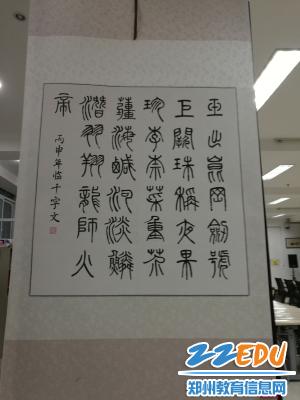 玉出崑岡劍號
巨闕珠稱夜果
珍李柰菜重芥
薑海鹹河淡鱗
潛羽翔龍師火
帝
丙申年临千字文
ZZEDU
郑州教育信息网